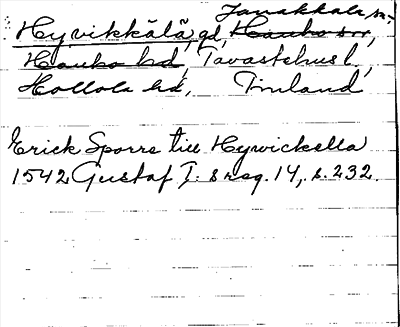 Janakkala sn,
Hyvikkälä, gd, Hauho sn,
Hauho hd, Tavastehus l.,
Hollola hd, Finland
Erick Sporre till Hywickella
1542 Gustaf I:s reg. 14, s. 232.